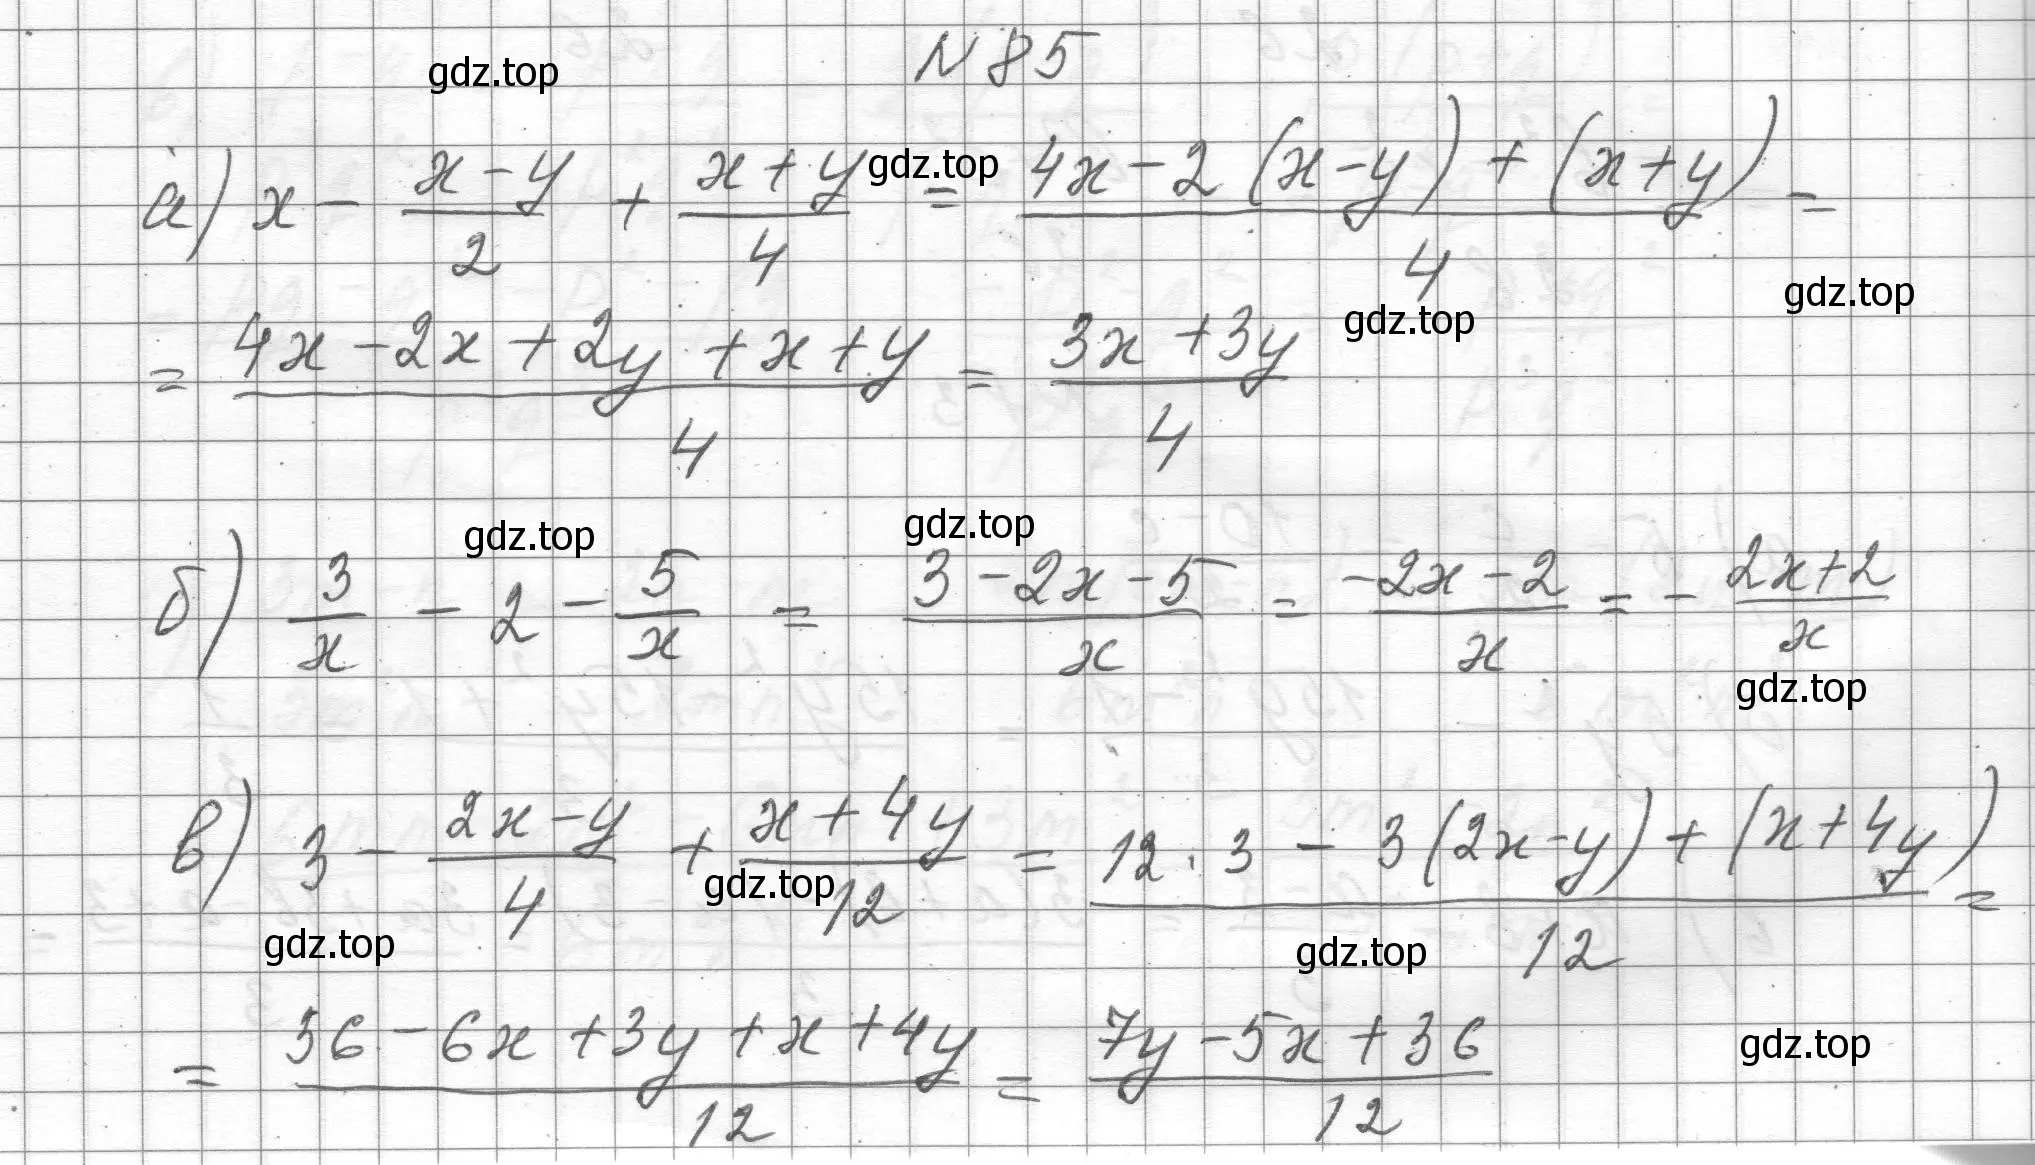 N 85
а) x - \frac{x-y}{2} + \frac{x+y}{4} = \frac{4x-2(x-y)+(x+y)}{4} =
= \frac{4x-2x+2y+x+y}{4} = \frac{3x+3y}{4}
б) \frac{3}{x} - 2 - \frac{5}{x} = \frac{3-2x-5}{x} = \frac{-2x-2}{x} = - \frac{2x+2}{x}
в) 3 - \frac{2x-y}{4} + \frac{x+4y}{12} = \frac{12·3-3(2x-y)+(x+4y)}{12} =
= \frac{36-6x+3y+x+4y}{12} = \frac{7y-5x+36}{12}
gdz.top
gdz.top
gdz.top
gdz.top
gdz.top
gdz.top
gdz.top
gdz.top
gdz.top
gdz.top
gdz.top